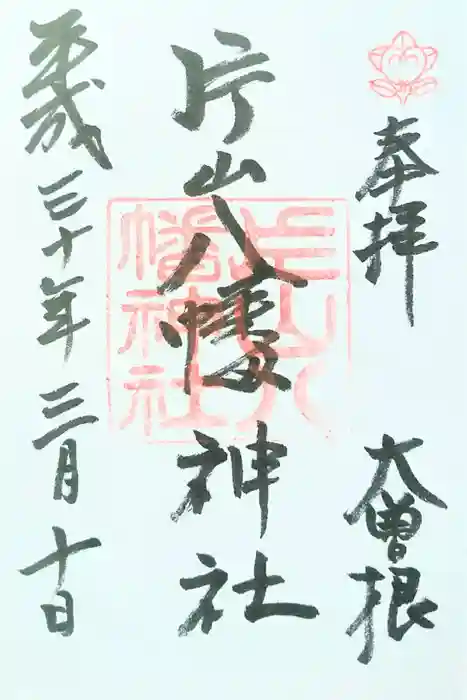 奉拝
大曽根
片山八幡神社
片山八幡神社
平成三十年三月十日